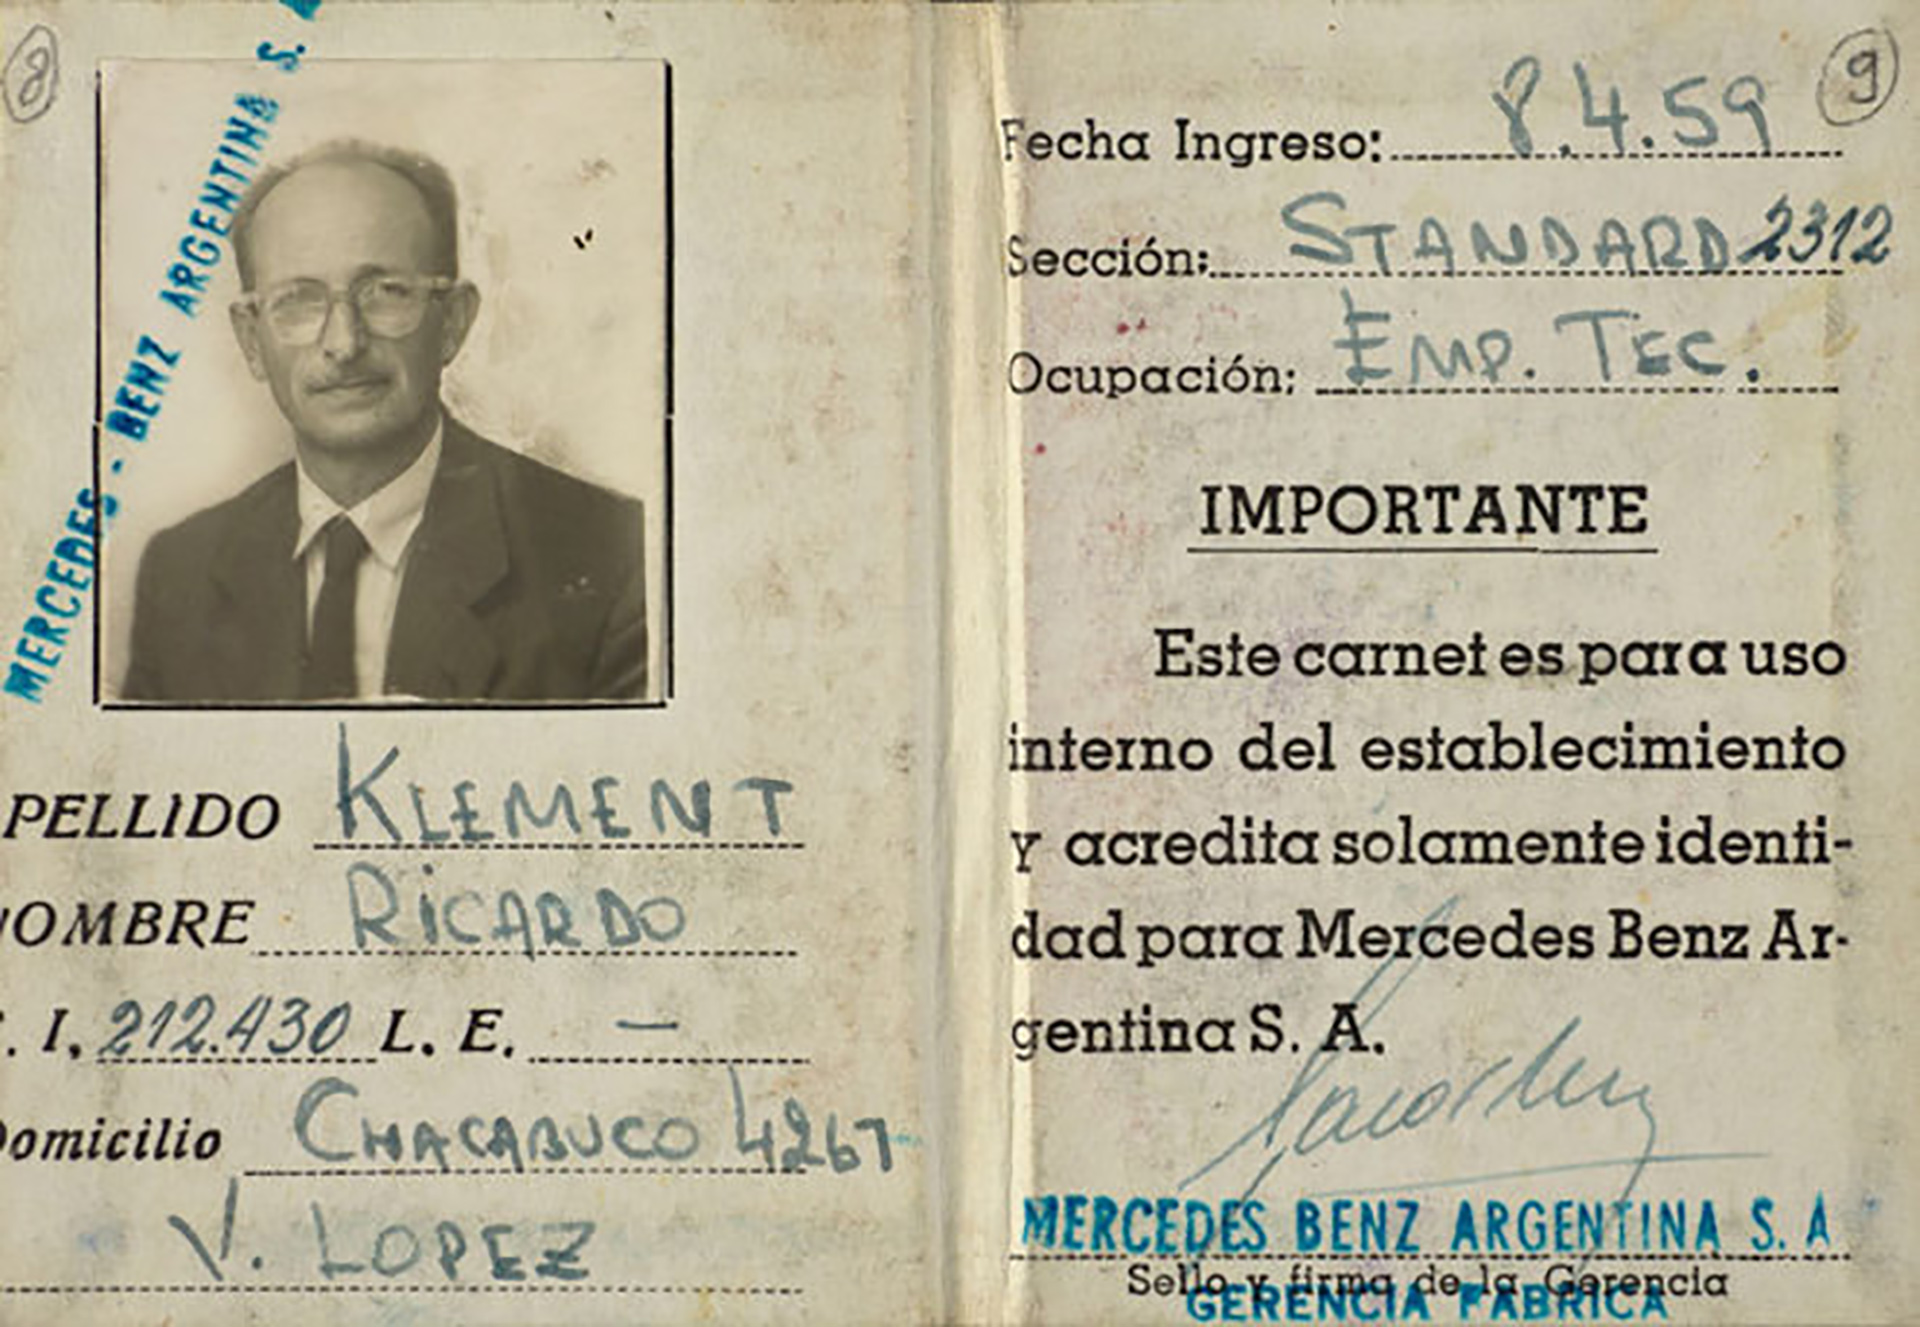 8
MERCEDES - BENZ ARGENTINA S. A
PELLIDO KLEMENT
NOMBRE RICARDO
. I. 212.430 L. E. —
Domicilio CHACABUCO 4267
V. LOPEZ
9
Fecha Ingreso: 8.4.59
Sección: STANDARD 2312
Ocupación: EMP. TEC.
IMPORTANTE
Este carnet es para uso
interno del establecimiento
y acredita solamente identi-
dad para Mercedes Benz Ar-
gentina S. A.
MERCEDES BENZ ARGENTINA S. A
Sello y firma de la Gerencia
GERENCIA FABRICA